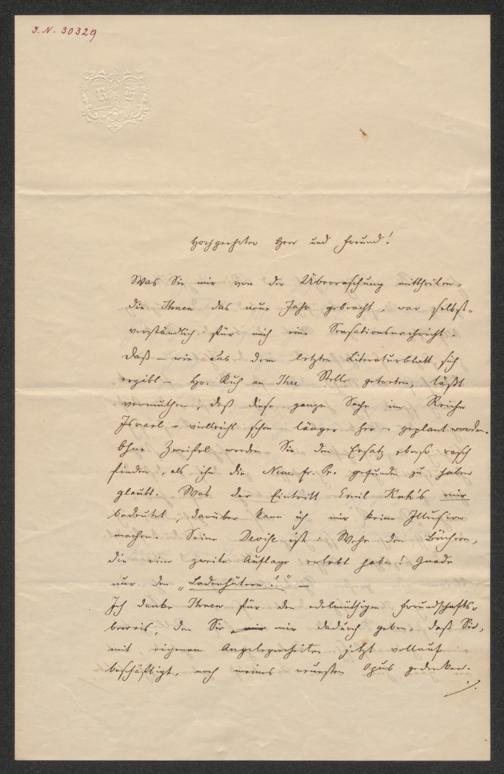 J.N. 30329
Hochgeehrter Herr und Freund!
Was Sie mir von der Überraschung mittheilen,
die Ihnen das neue Jahr gebracht, war selbst-
verständlich für mich eine Sensationsnachricht.
Daß – wie aus dem letzten Literaturblatt sich
ergibt – Hr. Kuh an Ihre Stelle getreten, läßt
vermuthen, daß diese ganze Sache im Reiche
Israel – vielleicht schon länger her – geplant worden.
Ohne Zweifel werden Sie den Ersatz ebenso rasch
finden, als ihn die Neue fr. Pr. gefunden zu haben
glaubt. Was der Eintritt Emil Kuh's mir
bedeutet, darüber kann ich mir keine Illusion
machen. Seine Devise ist: Wehe den Büchern,
die eine zweite Auflage erlebt haben! Gnade
nur den „Ladenhütern!" –
Ich danke Ihnen für den edelmüthigen Freundschafts-
beweis, den Sie mir dadurch geben, daß Sie,
mit eigenen Angelegenheiten jetzt vollauf
beschäftigt, noch meines neuesten Opus gedenken.
./.